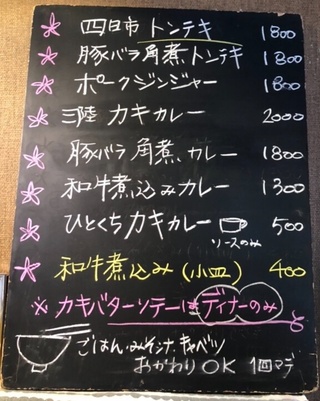 四日市 トンテキ 1800
豚バラ角煮トンテキ 1800
ポークジンジャー 1800
三陸 カキカレー 2000
豚バラ 角煮カレー 1800
和牛煮込みカレー 1300
ひとくちカキカレー 500
ソースのみ
和牛煮込み (小皿) 400
※ カキバターソテーはディナーのみ
ごはん・みそシナ キャベツ
おかわりOK 1回マデ